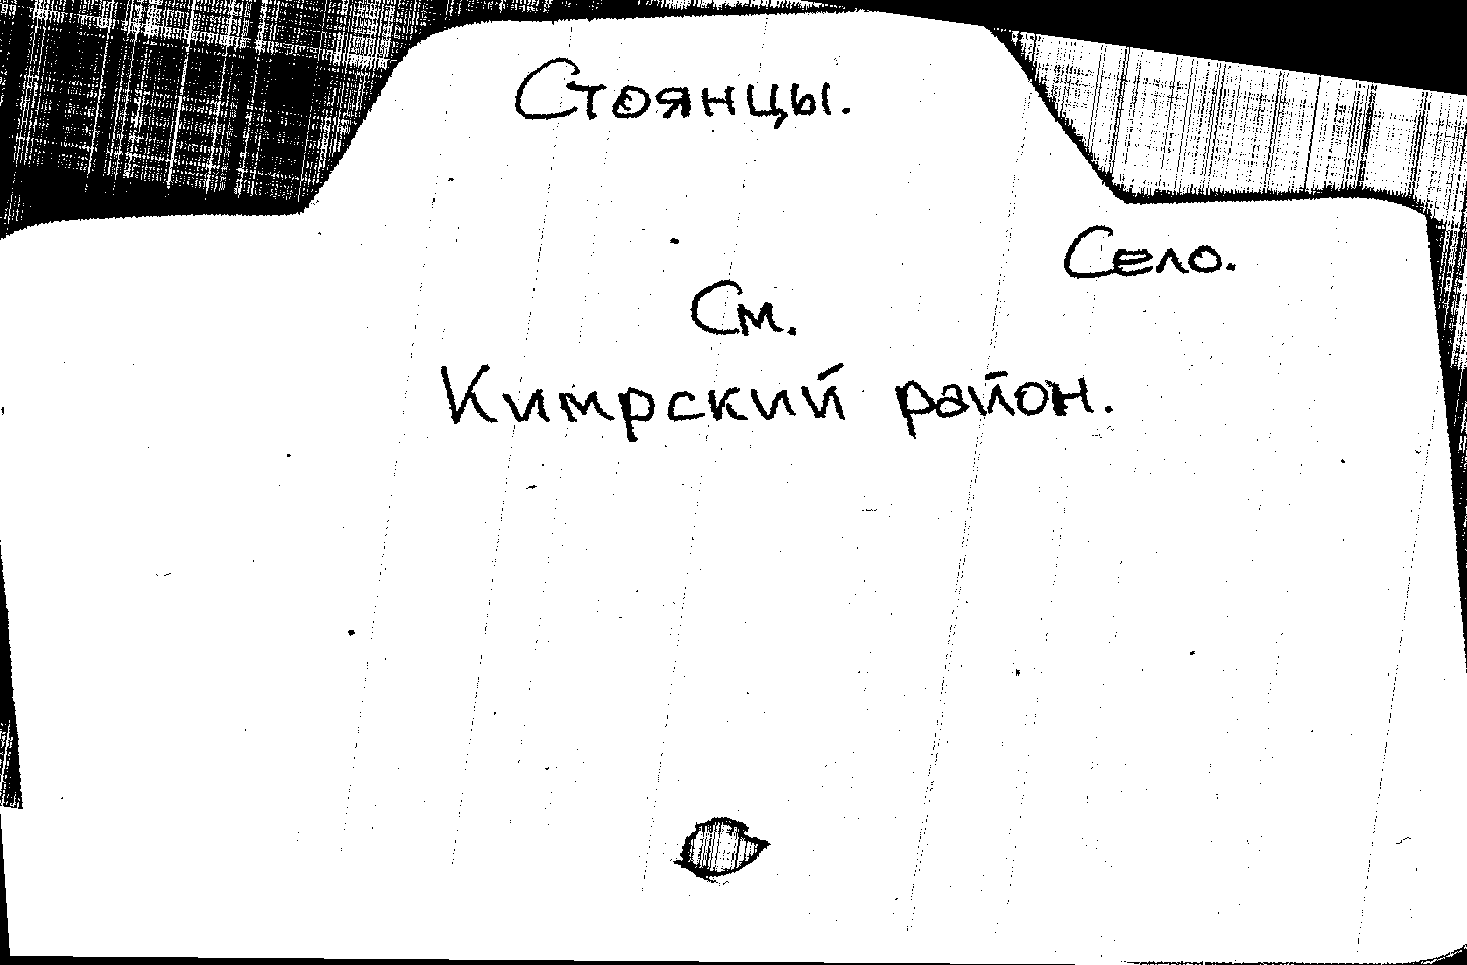 Стоянцы.
Село.
См.
Кимрский район.